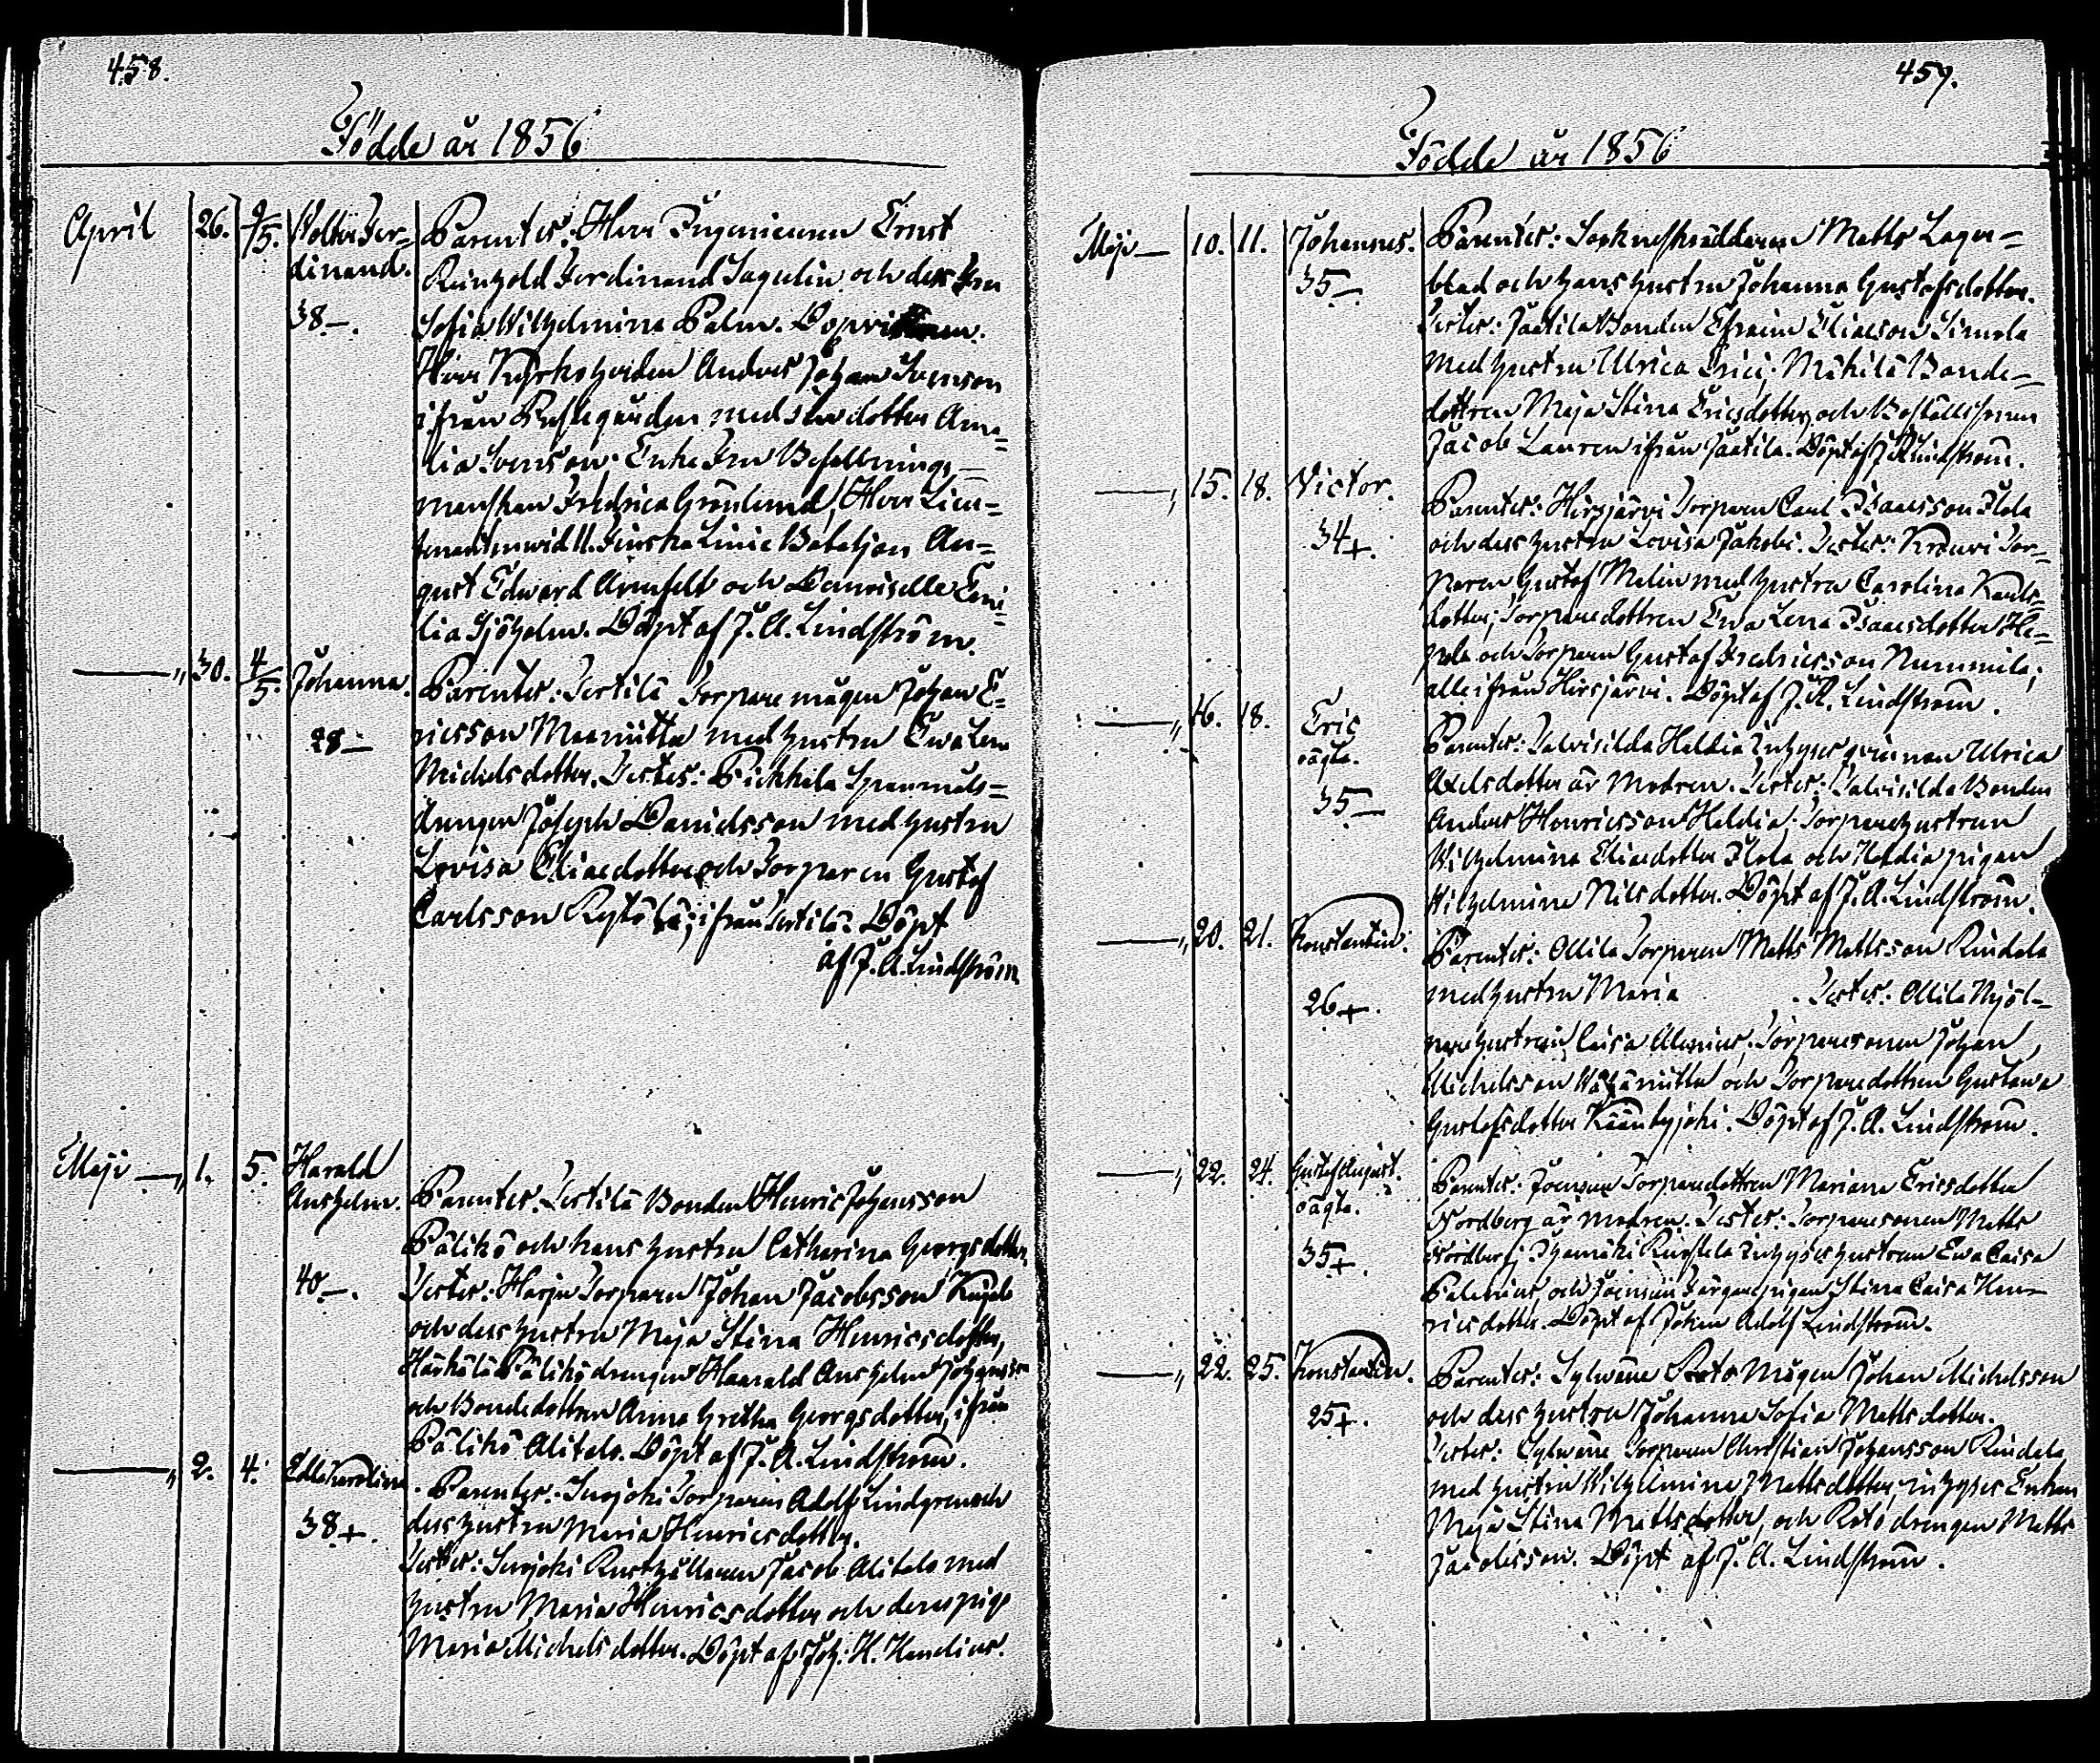 458.
Födde år 1856
April 26. 9/5. Wolter Fer= Parentes: Herr Ingenieuren Ernst
dinand. Reinhold Ferdinand Sagulin och dess Fru
38–. Sofia Wilhelmina Palm.
Herr Kyrkoherden Anders Johan Svenson
ifrån Prestegården med dotter Ame=
lia Svenson; Enke Fru Befallnings=
manskan Fredrica Grönlund, Herr Lieu=
tenanten wid II. Finska Linie Bataljon Au=
gust Edward Armfelt och Demoiselle Emi=
lia Sjöholm. Döpt af J. A. Lindström.
—„ 30. 4/5. Johanna. Parentes: Sertilä Torpare mågen Johan E=
28– ricsson Maanitta med hustru Ewa Lena
Michelsdotter. Testes: Pickhela Spannmåls=
drengen Joseph Danielsson med hustru
Lovisa Eliaedotter och Torparen Gustaf
Carlsson Rytölä; ifrån Sertilä. Döpt
af J. A. Lindström
Maji —„ 1. 5. Harald
Anshelm. Parentes: Sertilä Bonden Henric Johansson
Pälikö och hans hustru Catharina Georgsdotter,
40–. Testes: Harju Torparen Johan Jacobsson
och dess hustru Maja Stina Henricsdotter,
Pälikö drengen Haarald Anshelm Johansson
och Bondedottren Anna Gretha Georgsdotter, ifrån
Pälikö Alitalo. Döpt af J. A. Lindström.
—„ 2. 4. Edla Karolina. Parentes: Suojoki Torparen Adolf Lindgren och
38+. dess hustru Maria Henricsdotter.
Testes: Suojoki Rusthållaren Jacob Alitalo med
hustru Maria Henricsdotter och deras piga
Maria Michelsdotter. Döpt af Joh: H.
459.
Födde år 1856
Maji— 10. 11. Johannes. Parentes: Sockneskräddaren Matts Lager=
35– blad och hans hustru Johanna Gustafsdotter.
Testes: Jaatila Bonden Efraim Eliaeson Simola
med hustru Ulrica Erici; Mäkilä Bonde=
dottren Maja Stina Ericsdotter, och
Jacob Lauren ifrån Jaatila. Döpt af J. A. Lindström.
—„ 15. 18. Victor. Parentes: Hirsjärvi Torparen Carl Isaacsson Flola
34+. och dess hustru Lovisa Jakobi. Testes: Krouvi Tor=
paren Gustaf Malin med hustru Carolina Karls=
dotter; Torparedottren Ewa Lena Isaacsdotter He=
pola och Torparen Gustaf Fredricsson Nummila;
alle ifrån Hirsjärvi. Döpt af J. A. Lindström.
—„ 16. 18. Eric Parentes: Talvisilda Heldia Inhyses qvinnan Ulrica
oägta. Axelsdotter är Modren. Testes: Talvisilda Bonden
35– Anders Henricsson Heldia; Torparehustrun
Wilhelmina Eliaedotter Flola och Heldia pigan
Wilhelmina Nilsdotter. Döpt af J. A. Lindström.
—„ 20. 21. Konstantin. Parentes: Ollila Torparen Matts Mattsson Rindala
26+. med hustru Maria . Testes: Ollila Mjöl=
narehustrun Caisa Alenius; Torparesonen Johan
Michelsson och Torparedottren Gustava
Gustafsdotter Kääntyjoki. Döpt af J. A. Lindström.
—„ 22. 24. Gustaf August. Parentes: Torparedottren Mariana Ericsdotter
oägta. Nordberg är modren. Testes: Torparesonen Matts
35+. Nordberg; Inhyses hustrun Ewa Caisa
Palenius, och pigan Stina Caisa Hen=
ricsdotter. Döpt af Johan Adolf Lindström.
—„ 22. 25. Konstantin. Parentes: Sylwäne Mågen Johan Michelsson
25+. och dess hustru Johanna Sofia Mattsdotter.
Testes: Sylwäne Torparen Christian Johansson Rindala
med hustru Wilhelmina Mattsdotter, inhyses Enkan
Maja Stina Mattsdotter, och drengen Matts
Jacobsson. Döpt af J. A. Lindström.